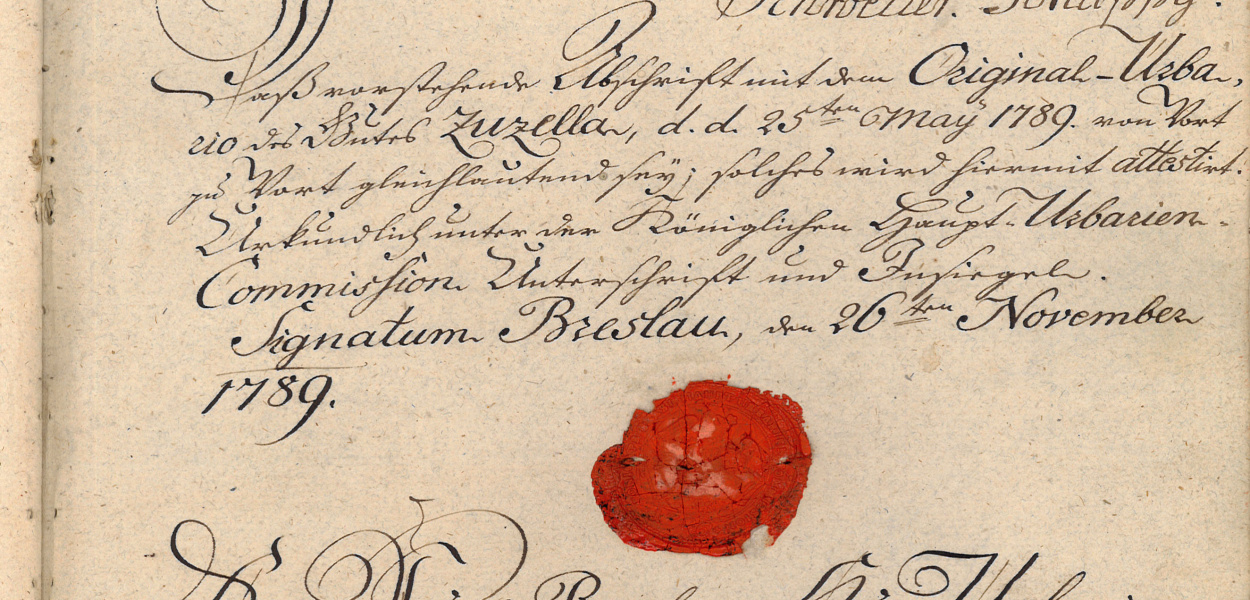 Daß vorstehende Abschrift mit dem Original-Urba-
rio des Gutes Zuzella, d. d. 25ten May 1789. von Wort
zu Wort gleichlautend sey; solches wird hiermit attestirt.
Urkundlich unter der Königlichen Haupt-Urbarien-
Commission Unterschrift und Insiegel.
Signatum Breslau, den 26ten November
1789.